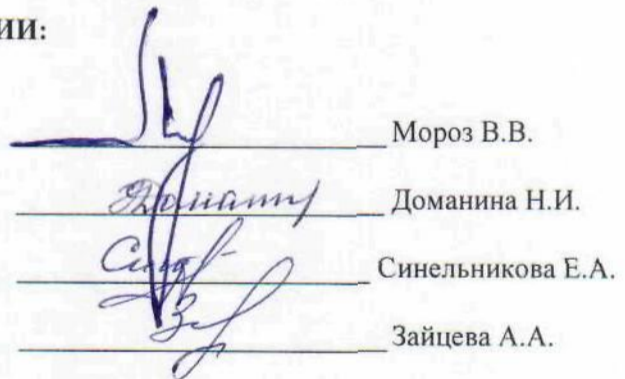 ИИ:
Мороз В.В.
Доманина Н.И.
Синельникова Е.А.
Зайцева А.А.